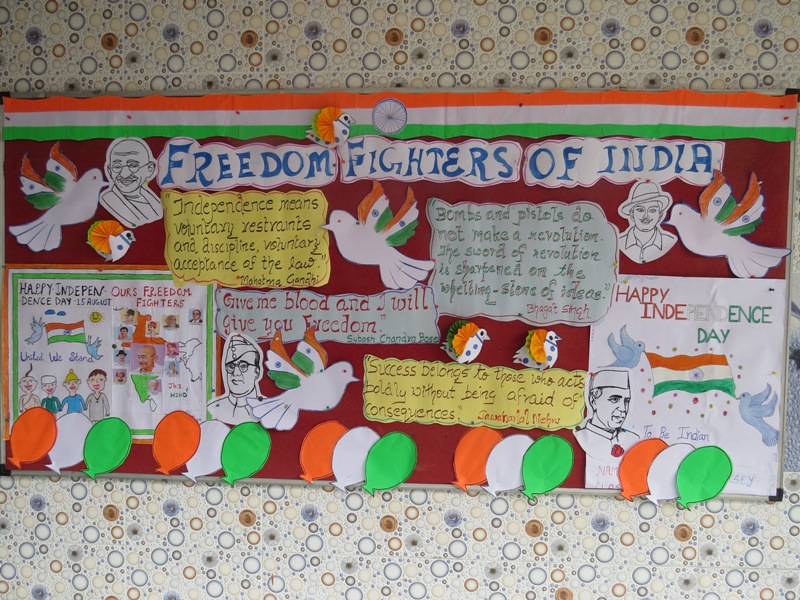 FREEDOM FIGHTERS OF INDIA
"Independence means
voluntary restraints
and, discipline, voluntary
acceptance of the law."
"Mahatma Gandhi
Bombs and pistols do
not make a revolution.
The sword of revolution
is sharpened on the
whelling-stone of ideas."
Bhagat singh
Give me blood and I will
Give you freedom."
Subash Chandra Bose
Success belongs to those who acts
boldly without being afraid of
consequences"
Jawaharlal Nehru
HAPPY INDEPEN-
DENCE DAY-15 AUGUST
United We Stand
OURS FREEDOM
FIGHTERS
JAI
HIND
HAPPY
INDEPENDENCE
DAY
To Be Indian
NAM